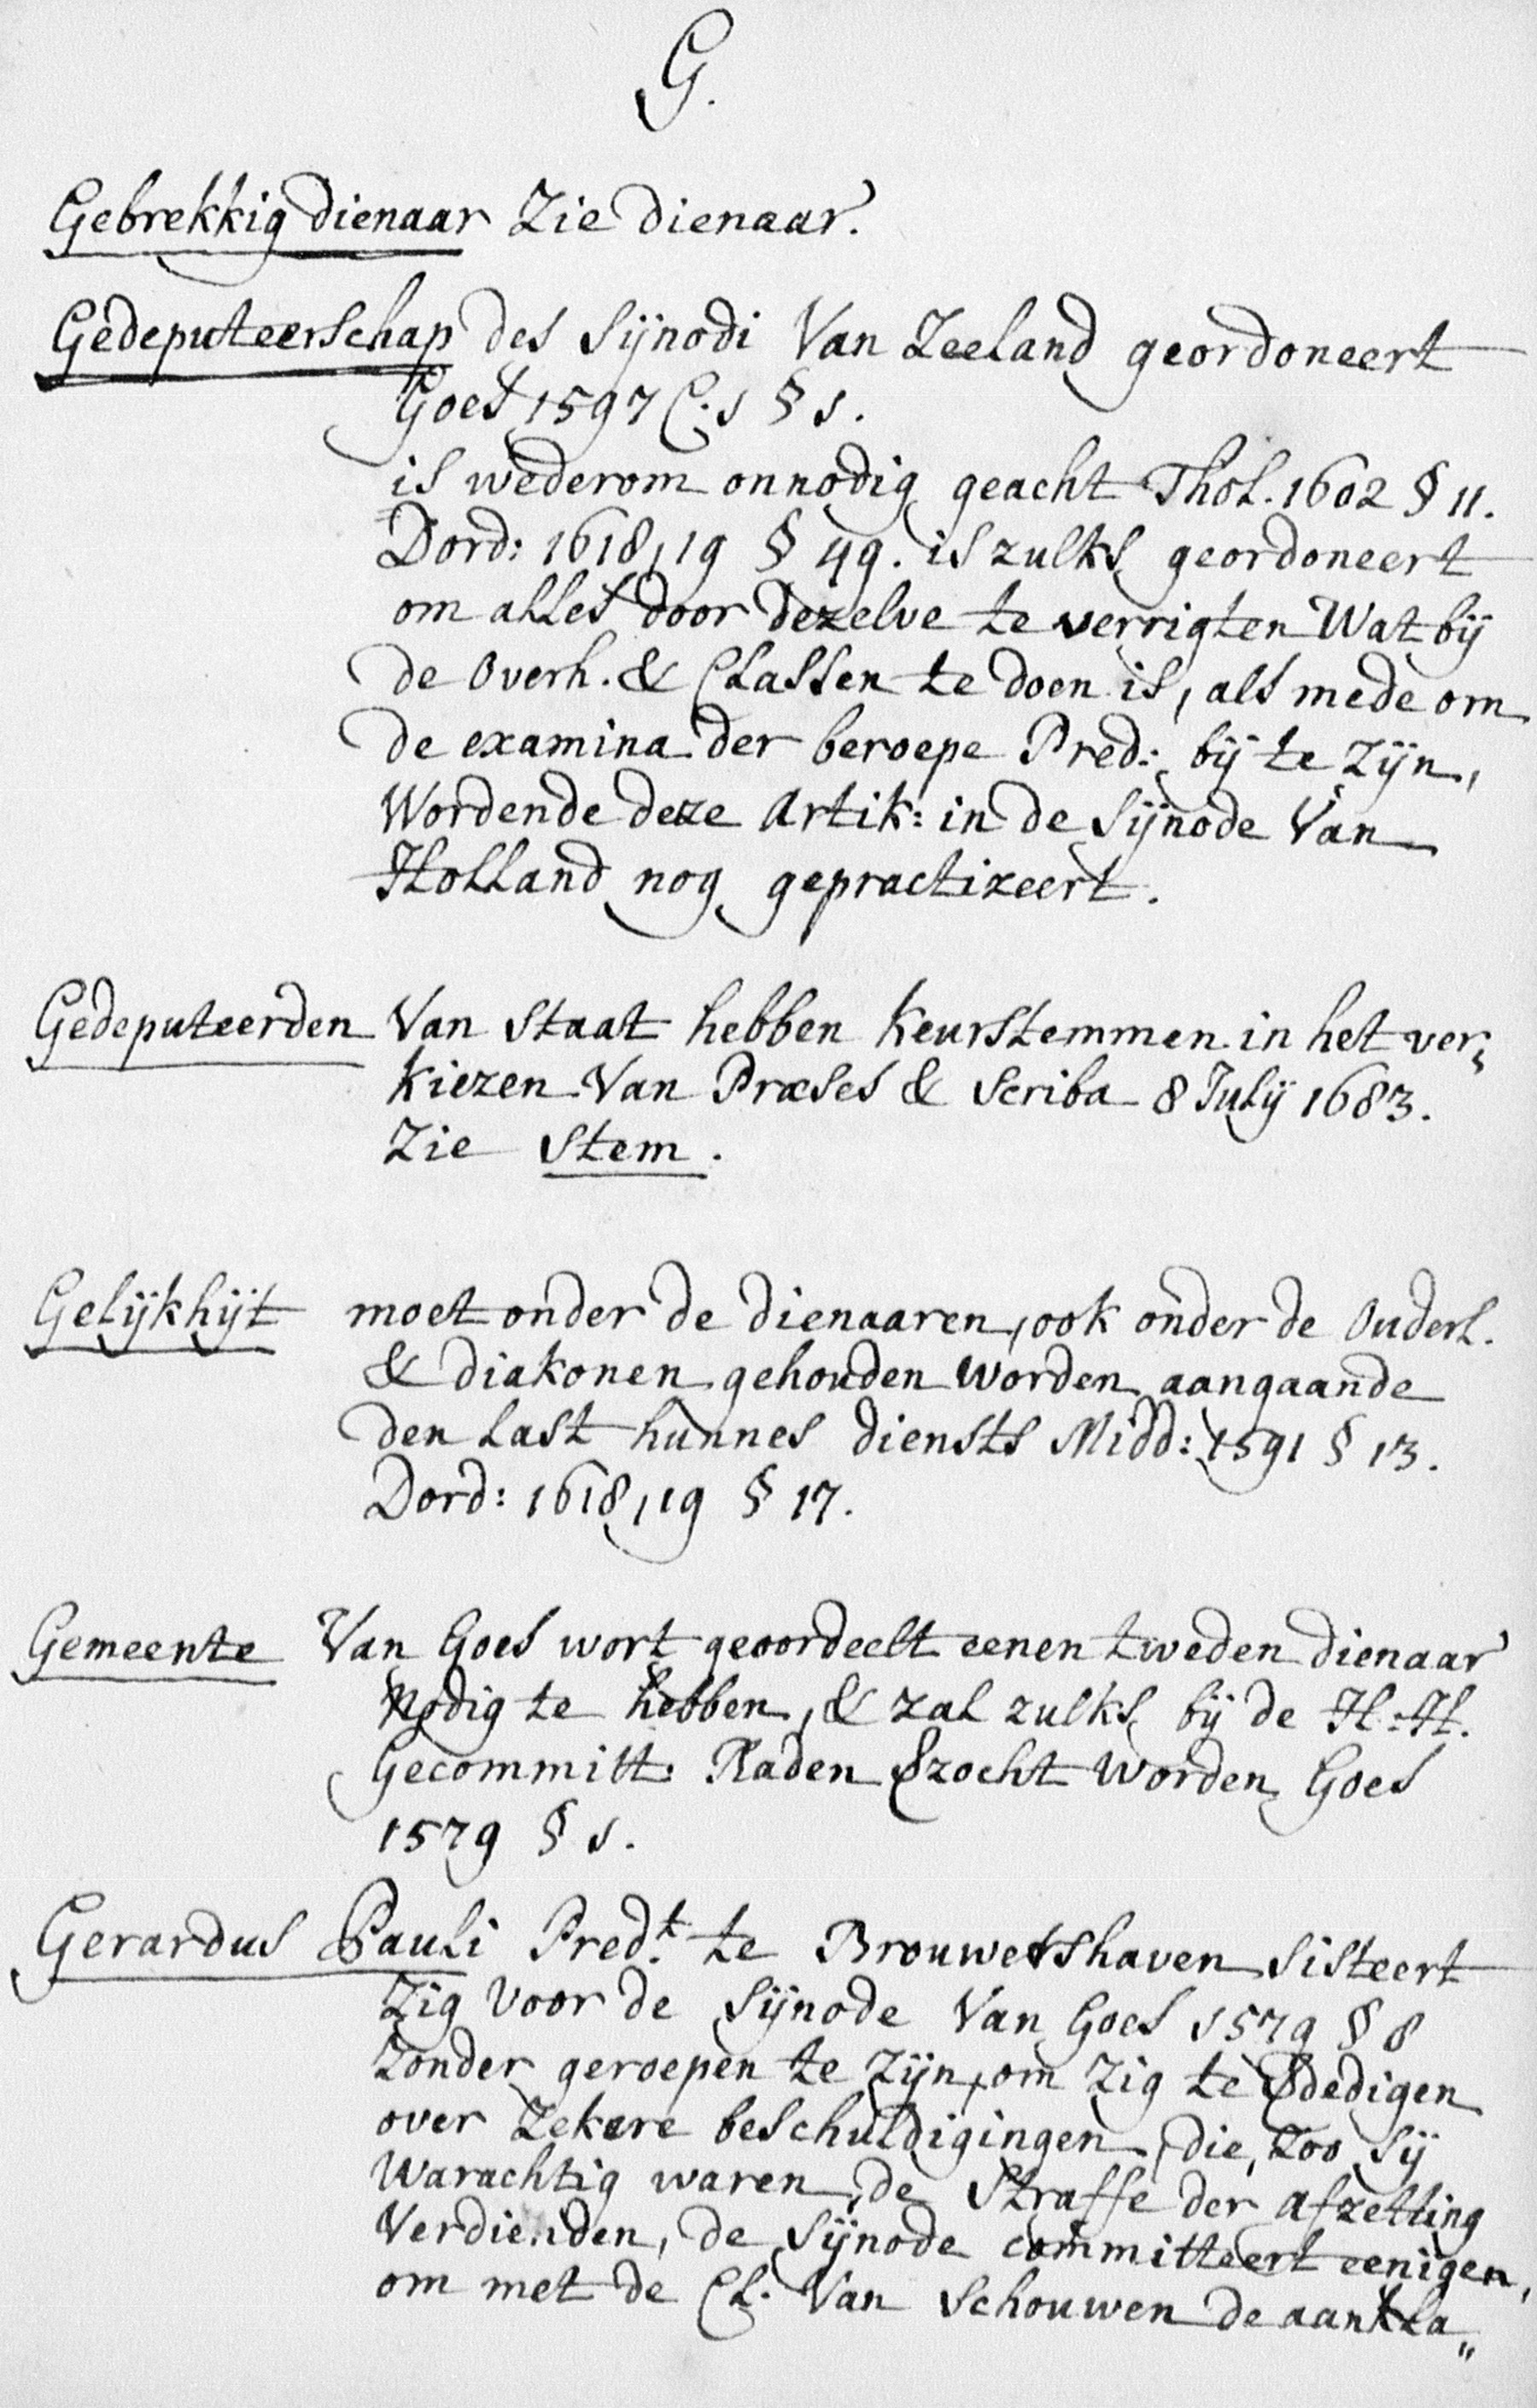 G.
Gebrekkig dienaar Zie dienaar.
Gedeputeerschap des Sijnodi Van Zeeland geordoneert
Goes 1597 C. 1 § 1.
is wederom onnodig geacht Thol. 1602 § 11.
Dord: 1618,19 § 49. is zulks geordoneert
om alles door dezelve te verrigten Wat bij
de Overh. & Classen te doen is, als mede om
de examina der beroepe Pred: bij te Zijn,
Wordende deze Artik: in de Sijnode Van
Holland nog gepractizeert.
Gedeputeerden Van Staat hebben Keurstemmen in het ver„
kiezen Van Præses & Scriba 8 Julij 1683.
Zie Stem.
Gelijkhijt moet onder de dienaaren, ook onder de Ouderl.
& diakonen gehouden Worden aangaande
den last hunnes diensts Midd: 1591 § 13.
Dord: 1618,19 § 17.
Gemeente Van Goes wort geoordeelt eenen tweden dienaar
Nodig te hebben, & zal zulks bij de H:H.
Gecommitt: Raden zocht Worden Goes
1579 § 1.
Gerardus Pauli Predt. te Brouwershaven Sisteert
Zig Voor de Sijnode Van Goes 1579 § 8
Zonder geroepen te Zijn, om Zig te dedigen
over Zekere beschuldigingen, die, Zoo Sij
Warachtig waren, de Straffe der Afzetting
Verdienden, de Sijnode committeert eenigen,
om met de Cl. Van Schouwen de aankla„